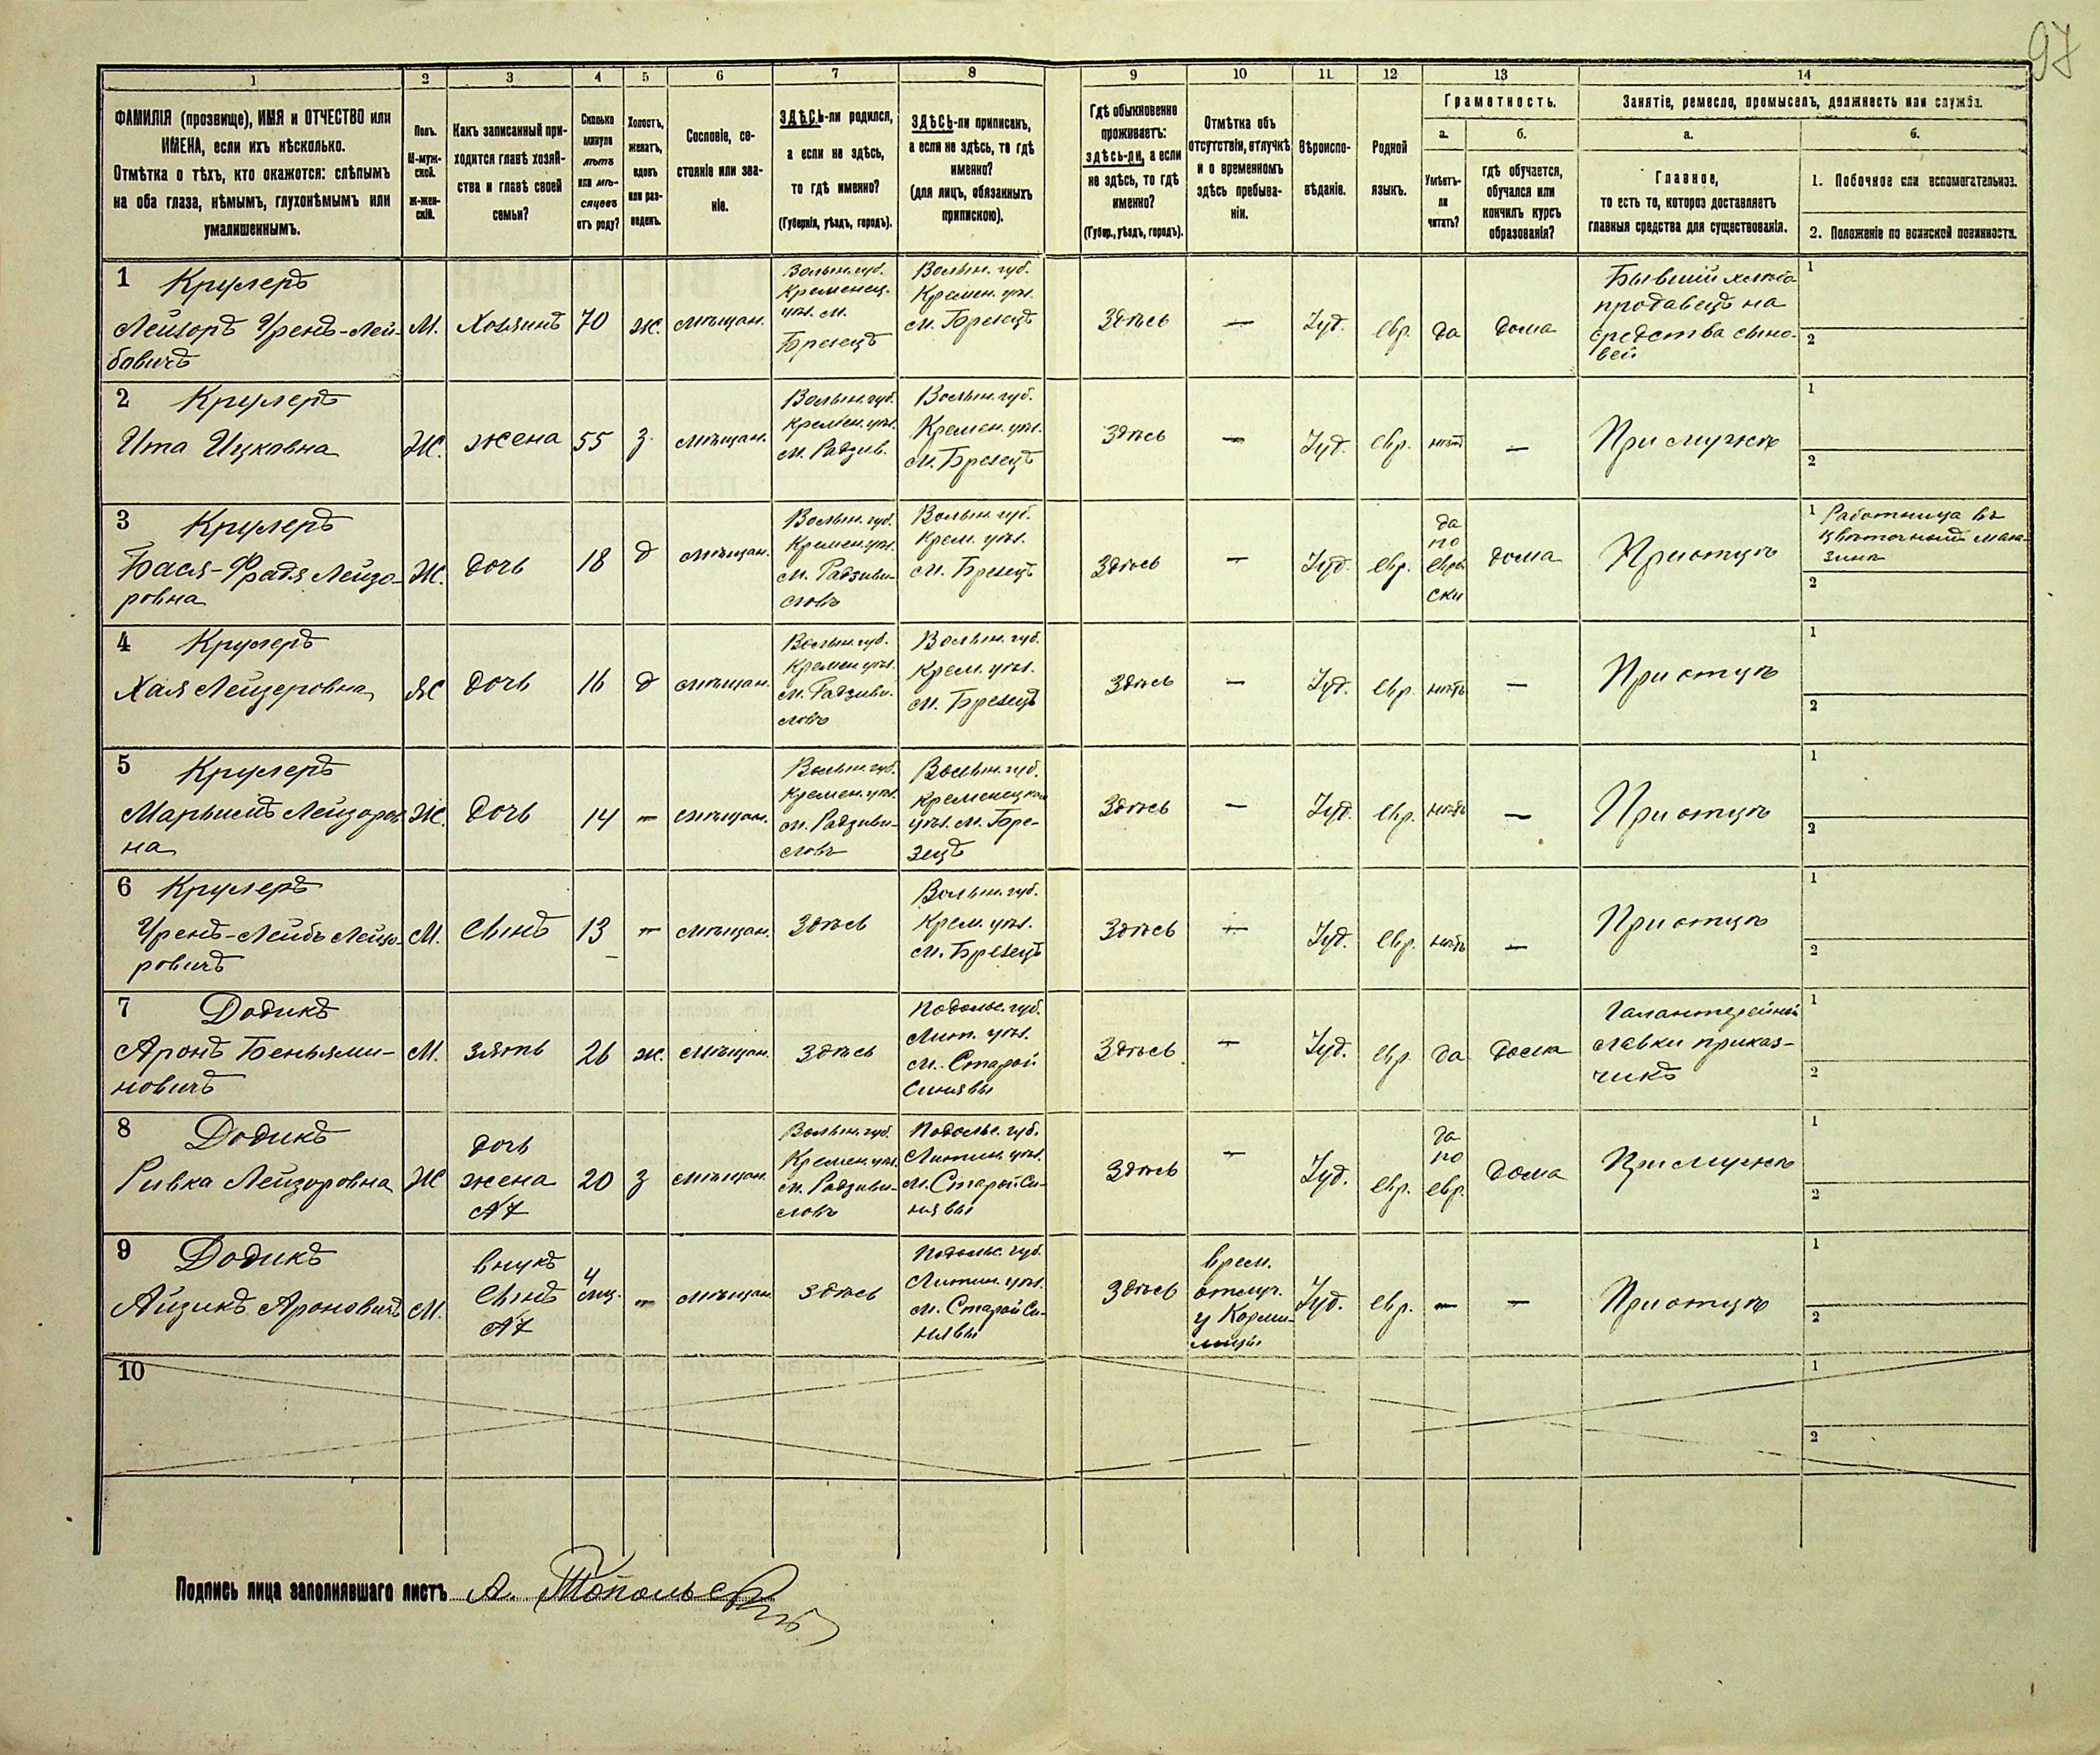 97
1 2 3 4 5 6 7 8 9 10 11 12 13 14
ФАМИЛІЯ (прозвище), ИМЯ и ОТЧЕСТВО или
ИМЕНА, если ихъ нѣсколько.
Отмѣтка о тѣхъ, кто окажется: слѣпымъ
на оба глаза, нѣмымъ, глухонѣмымъ или
умалишеннымъ.
Полъ.
М-муж-
ской.
ж-жен-
скій.
Какъ записанный при-
ходится главѣ хозяй-
ства и главѣ своей
семьи?
Сколько
минуло
лѣтъ
или мѣ-
сяцевъ
отъ роду?
Холостъ,
женатъ,
вдовъ
или раз-
веденъ.
Сословіе, со-
стояніе или зва-
ніе.
ЗДѢСЬ-ли родился,
а если не здѣсь,
то гдѣ именно?
(Губернія, уѣздъ, городъ).
ЗДѢСЬ-ли приписанъ,
а если не здѣсь, то гдѣ
именно?
(для лицъ, обязанныхъ
припискою).
Гдѣ обыкновенно
проживаетъ:
здѣсь-ли, а если
не здѣсь, то гдѣ
именно?
(Губер., уѣздъ, городъ).
Отмѣтка объ
отсутствіи, отлучкѣ
и о временномъ
здѣсь пребыва-
ніи.
Вѣроиспо-
вѣданіе.
Родной
языкъ.
Грамотность.
а.
Умѣетъ-
ли
читать?
б.
гдѣ обучается,
обучался или
кончилъ курсъ
образованія?
Занятіе, ремесло, промыселъ, должность или служба.
а.
Главное,
то есть то, которое доставляетъ
главныя средства для существованія.
б.
1. Побочное или вспомогательное.
2. Положеніе по воинской повинности.
1 Крулеръ
Лейзоръ Уренъ-Лей-
бовичъ
М.
Хозяинъ
70
ж.
мѣщан.
Волын. губ.
Кременец.
уѣз. м.
Брезецъ
Волын. губ.
Кремен. уѣз.
м. Брезецъ
Здѣсь
—
Іуд.
евр.
да
дома
Бывшій хлѣбо
продавецъ на
средства сыно-
вей
1
2
2 Крулеръ
Ита Ицковна
Ж.
жена
55
з.
мѣщан.
Волын. губ.
Кремен. уѣз.
м. Радзив.
Волын. губ.
Кремен. уѣз.
м. Брезецъ
Здѣсь
—
Іуд.
евр.
нѣтъ
—
При мужѣ
1
2
3 Крулеръ
Бася-Фрадя Лейзо-
ровна
Ж.
дочь
18
д
мѣщан.
Волын. губ.
Кремен. уѣз.
м. Радзиви-
ловъ
Волын. губ.
Крем. уѣз.
м. Брезецъ
Здѣсь
—
Іуд.
евр.
да
по
евре
ски
дома
При отцѣ
1 Работница въ
цвѣточномъ мага-
зинѣ
2
4 Крулеръ
Хая Лейзеровна
Ж
дочь
16
д
мѣщан.
Волын. губ.
Кремен. уѣз.
м. Радзиви-
ловъ
Волын. губ.
Крем. уѣз.
м. Брезецъ
Здѣсь
—
Іуд.
евр.
нѣтъ
—
При отцѣ
1
2
5 Крулеръ
Марьимъ Лейзоров
на
Ж.
дочь
14
—
мѣщан.
Волын. губ.
Кремен. уѣз.
м. Радзиви-
ловъ
Волын. губ.
Кременецкаго
уѣз. м. Бре-
зецъ
Здѣсь
—
Іуд.
евр.
нѣтъ
—
При отцѣ
1
2
6 Крулеръ
Уренъ-Лейбъ Лейзо-
ровичъ
М.
сынъ
13
—
мѣщан.
Здѣсь
Волын. губ.
Крем. уѣз.
м. Брезецъ
Здѣсь
—
Іуд.
евр.
нѣтъ
—
При отцѣ
1
2
7 Додикъ
Аронъ Беньями-
новичъ
М.
зять
26
ж.
мѣщан.
Здѣсь
Подольс. губ.
Лит. уѣз.
м. Старой
Синявы
Здѣсь
—
Іуд.
евр.
да
дома
Галантерейной
лавки приказ-
чикъ
1
2
8 Додикъ
Ривка Лейзоровна
Ж
дочь
жена
№7
20
з
мѣщан.
Волын. губ.
Кремен. уѣз.
м. Радзиви-
ловъ
Подольс. губ.
Литин. уѣз.
м. Старой Си-
нявы
Здѣсь
—
Іуд.
евр.
да
по
евр.
дома
При мужѣ
1
2
9 Додикъ
Айзикъ Ароновичъ
М.
внукъ
сынъ
№7
4
мц.
—
мѣщан.
Здѣсь
Подольс. губ.
Литин. уѣз.
м. Старой Си-
нявы
Здѣсь
врем.
отлуч.
у Корми-
лицы
Іуд.
евр.
—
—
При отцѣ
1
2
10
1
2
Подпись лица заполнявшаго листъ А. Топольскій